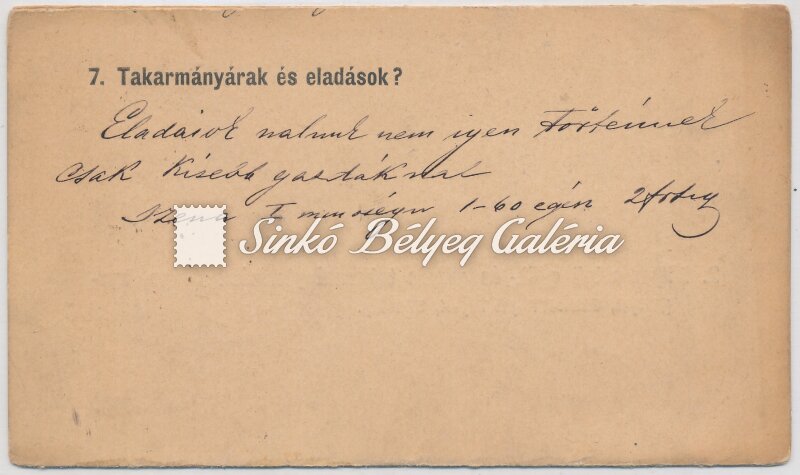 7. Takarmányárak és eladások?
Eladások nálunk nem igen történnek
csak kisebb gazdáknál
Széna I minőségű 1-60 egész 2 frtig
Sinkó Bélyeg Galéria